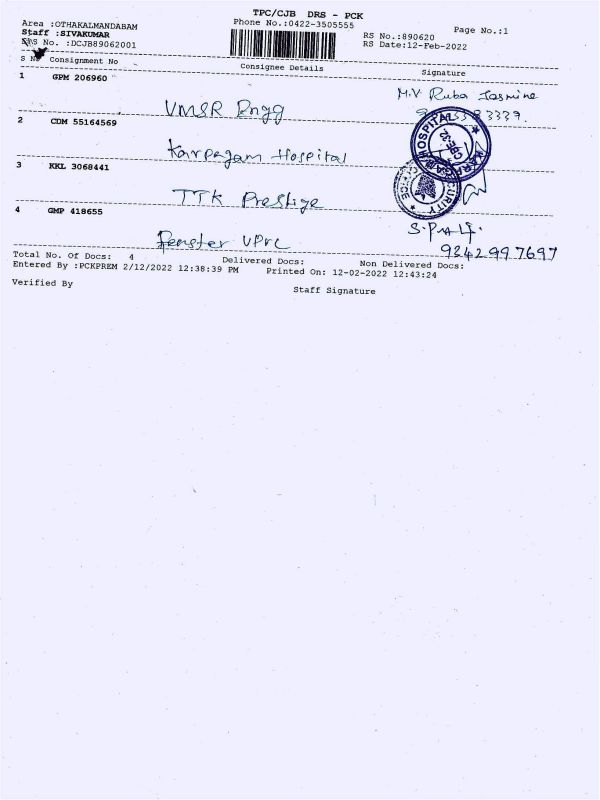 TPC/CJB DRS - PCK
Area :OTHAKALMANDABAM
Phone No.:0422-3505555
Page No.:1
Staff :SIVAKUMAR
RS No.:890620
DRS No. :DCJB89062001
RS Date:12-Feb-2022
S No Consignment No Consignee Details Signature
1 GPM 206960
VMSR Engg
M.V Ruba Jasmine
2 CDM 55164569
Karpagam Hospital
HOSPITAL
CBE-32
3 KKL 3068441
TTK Prestige
SECURITY
4 GMP 418655
Fenster UPVC
9342997697
Total No. Of Docs: 4 Delivered Docs: Non Delivered Docs:
Entered By :PCKPREM 2/12/2022 12:38:39 PM Printed On: 12-02-2022 12:43:24
Verified By
Staff Signature